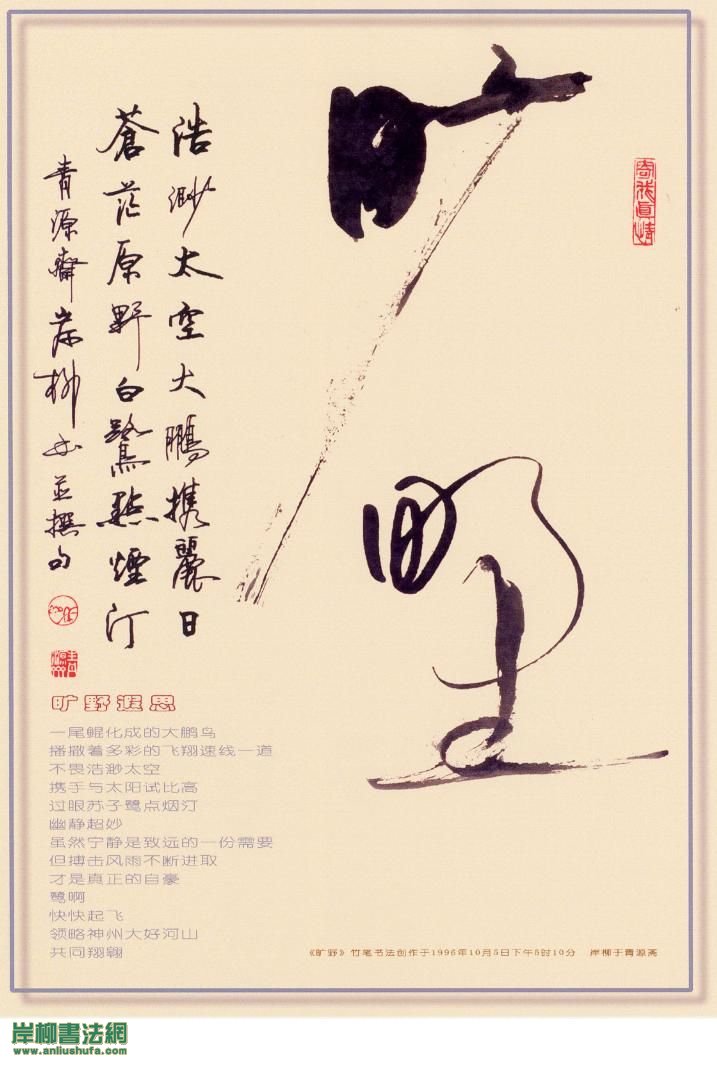 旷野
浩渺太空大鵬携麗日
蒼茫原野白鷺點煙汀
青源齋岸柳书並撰句
旷野遐思
一尾鲲化成的大鹏鸟
播撒着多彩的飞翔速线一道
不畏浩渺太空
携手与太阳试比高
过眼苏子鹭点烟汀
幽静超妙
虽然宁静是致远的一份需要
但搏击风雨不断进取
才是真正的自豪
鹭啊
快快起飞
领略神州大好河山
共同翔翱
《旷野》竹笔书法创作于1996年10月5日下午5时10分 岸柳于青源斋
岸柳書法網
www.anliushufa.com